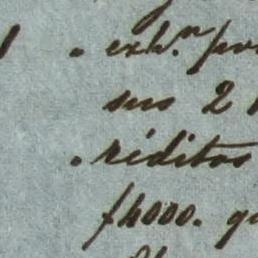 exh.n por
sus 2
réditos
f4000. qu